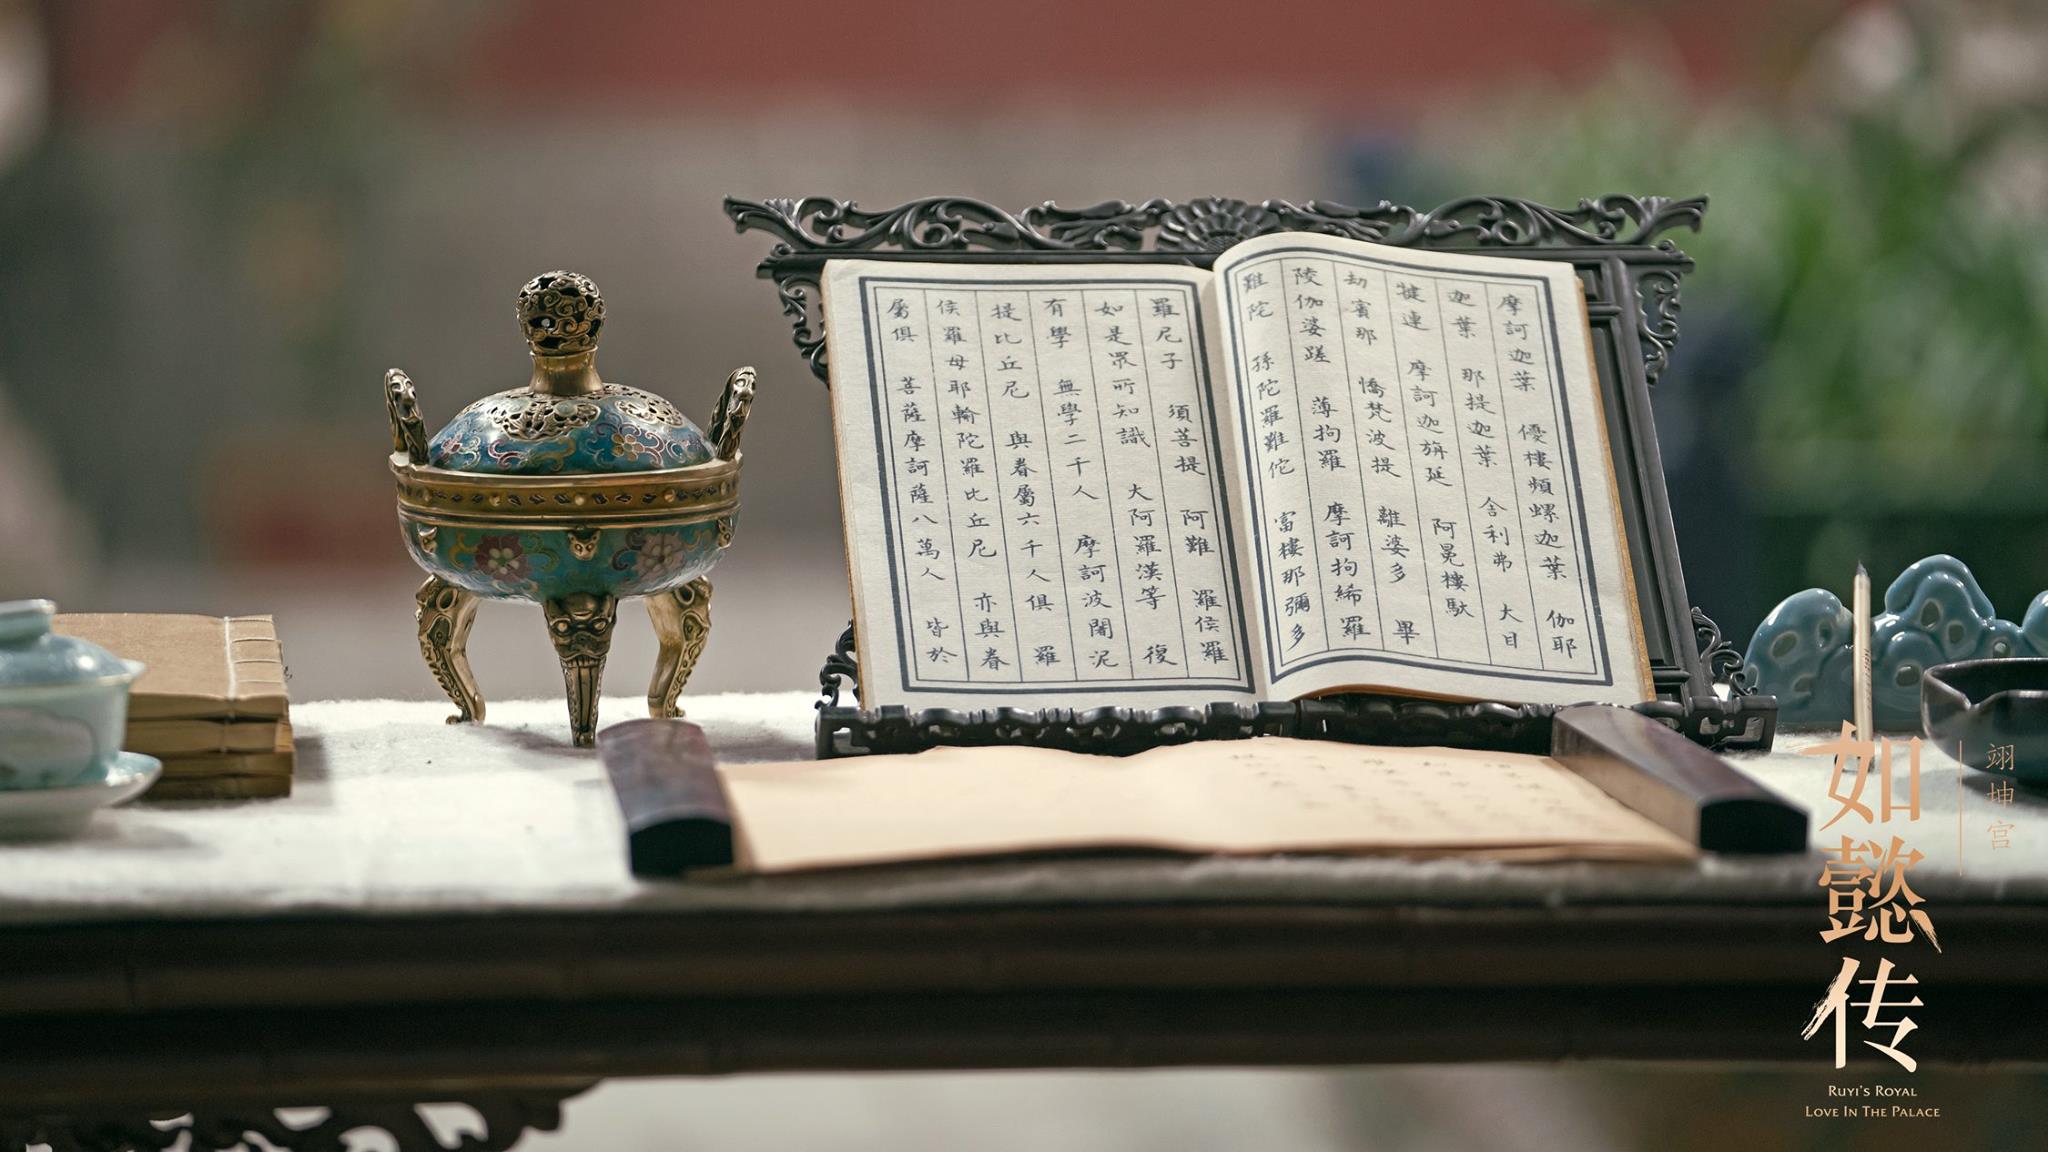 摩訶迦葉　優樓頻螺迦葉　伽耶
迦葉　那提迦葉　舍利弗　大目
揵連　摩訶迦旃延　阿㝹樓馱
劫賓那　憍梵波提　離婆多　畢
陵伽婆蹉　薄拘羅　摩訶拘絺羅
難陀　孫陀羅難陀　富樓那彌多
羅尼子　須菩提　阿難　羅侯羅
如是眾所知識　大阿羅漢等　復
有學　無學二千人　摩訶波闍泥
提比丘尼　與眷屬六千人俱　羅
侯羅母耶輸陀羅比丘尼　亦與眷
屬俱　菩薩摩訶薩八萬人　皆於
翊坤宫
如懿传
RUYI'S ROYAL
LOVE IN THE PALACE